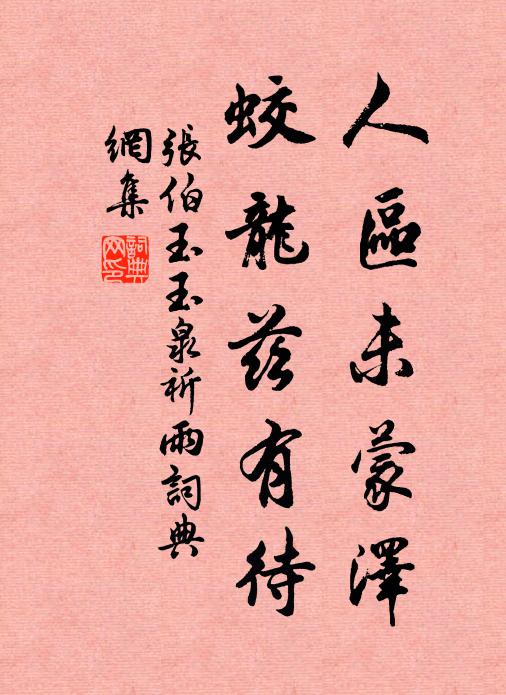 人區未蒙澤
蛟龍茲有待
張伯玉玉泉祈雨詞典
網集
詞典網印